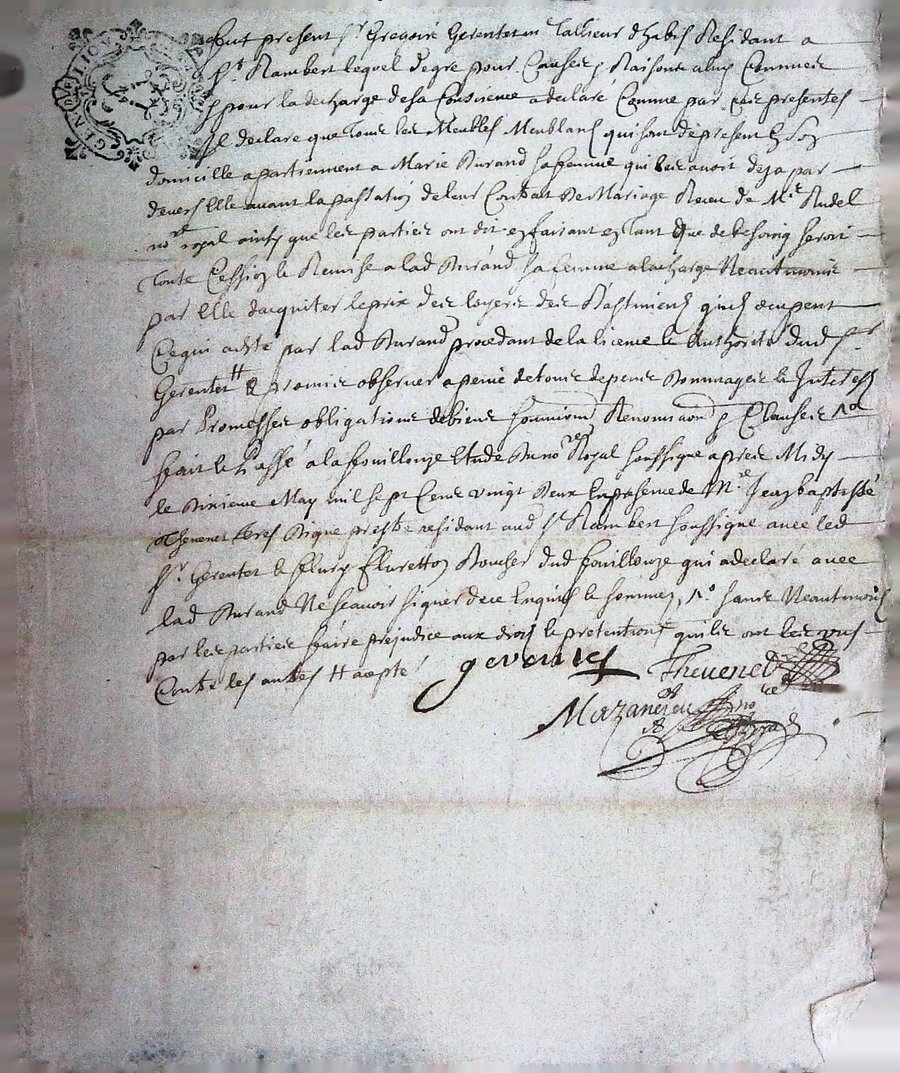 GEN DE LION
Fut present sr Gregoire Gerentet m tallieur dhabis Residant a
st Rambert lequel degre pour Causes & Raisons aluy Connues
& pour la decharge desa Consience a declaré Comme par ces presentes
Il declare que tous les Meubles Meublans qui sont de present En son
domicille apartiennent a Marie Durand sa femme qui les avoit deja par
devers Elle avant la passation de leur Contract De Mariage Receu de Me Rudel
nore royal ainsy que les parties ont dit en faisant en tant que de besoing seroit
toute Cession & Remise a lad Durand sa femme a la charge Neantmoins
par Elle dacquiter le prix des loyers des Bastiments quils ocupent
Ce qui a esté par lad Durand procedant de la licence & Authorité dud sr
Gerentet H & promis observer a peine de tous depens Dommages & Interests
par Promesses obligations de biens soumions Renons & Clauses
fait & Passé a la fouillouze Etude du nore Royal soussigné apres Midy
le Dixieme May mil sept Cens vingt Deux En presence de Mre Jean baptiste
Thevenet prestre residant aud st Rambert soussigné avec led
sr Gerentet & fleury fleuretton Boucher dud fouillouze qui a declaré avec
lad Durand Ne scavoir signer de ce Enquis & sommés, sans Neantmoins
par les parties faire prejudice aux droits & pretentions quils ont les uns
Contre les autres H acepté
gerentet Thevenet
Mazanc nore